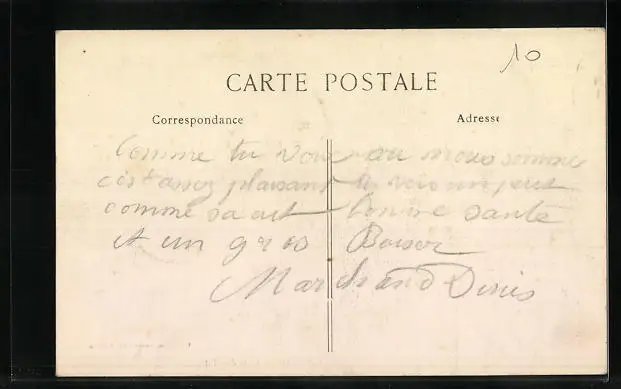 10
CARTE POSTALE
Correspondance
Adresse
Comme tu voие ou nous sommes
c'ès t assez plaisant a voir un peut
comme sa aut bonne santé
et un gros Baiser
Marchand Denis